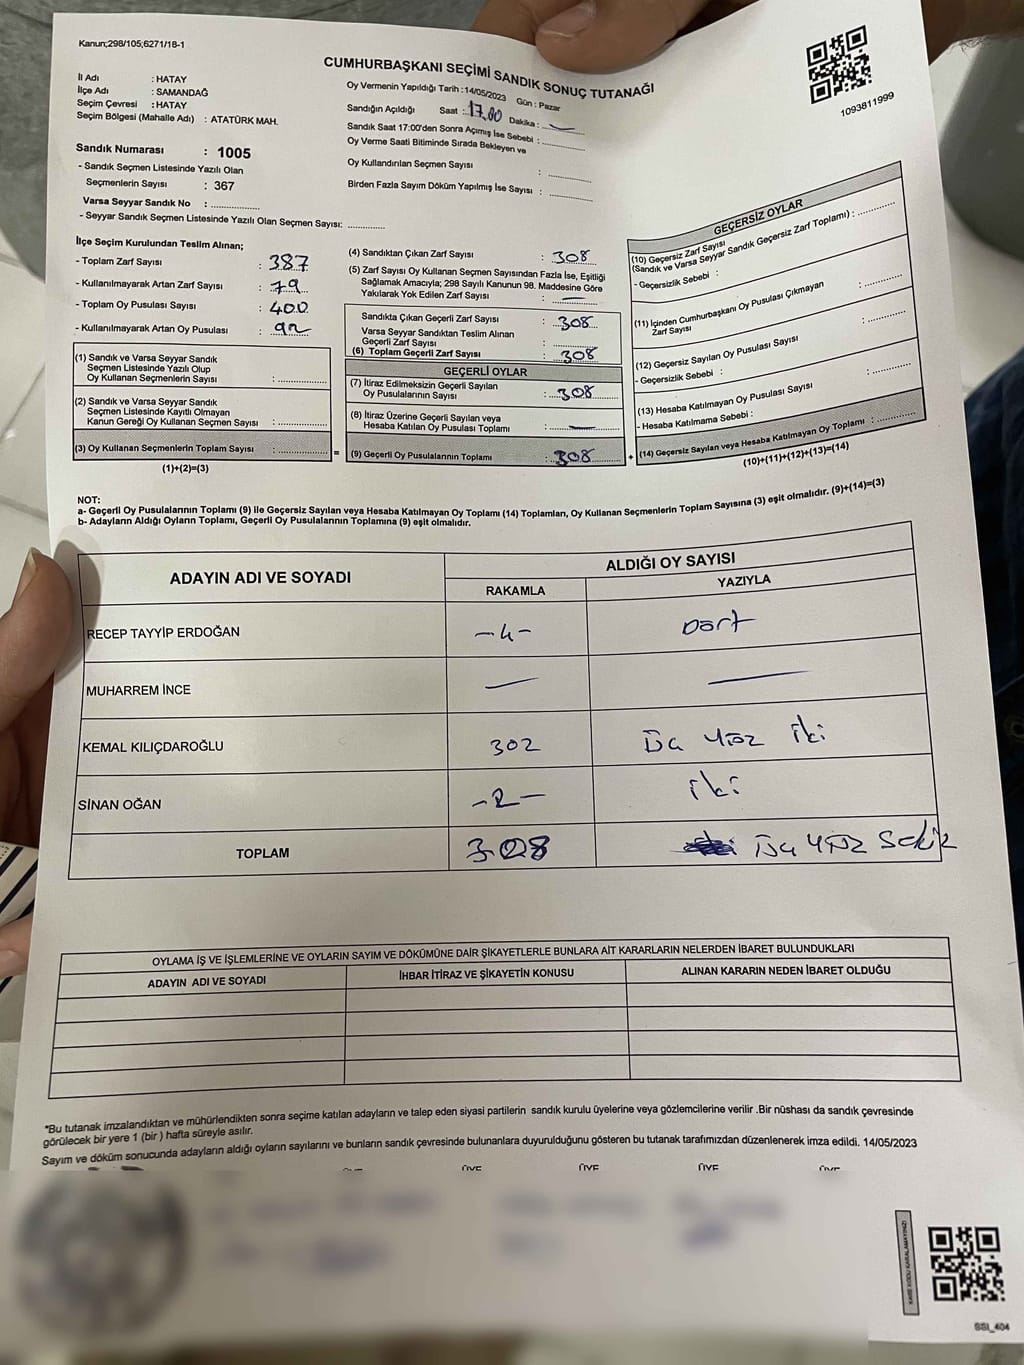 Kanun;298/105;6271/18-1
CUMHURBAŞKANI SEÇİMİ SANDIK SONUÇ TUTANAĞI
1093811999
İl Adı : HATAY
İlçe Adı : SAMANDAĞ
Seçim Çevresi : HATAY
Seçim Bölgesi (Mahalle Adı) : ATATÜRK MAH.
Sandık Numarası : 1005
- Sandık Seçmen Listesinde Yazılı Olan
Seçmenlerin Sayısı : 367
Varsa Seyyar Sandık No : ..............
- Seyyar Sandık Seçmen Listesinde Yazılı Olan Seçmen Sayısı: ............
Oy Vermenin Yapıldığı Tarih :14/05/2023 Gün : Pazar
Sandığın Açıldığı Saat : 17.00 Dakika : —
Sandık Saat 17:00'den Sonra Açımış İse Sebebi : ..............
Oy Verme Saati Bitiminde Sırada Bekleyen ve
Oy Kullandırılan Seçmen Sayısı : ..............
Birden Fazla Sayım Döküm Yapılmış İse Sayısı : ..............
İlçe Seçim Kurulundan Teslim Alınan;
- Toplam Zarf Sayısı : 387
- Kullanılmayarak Artan Zarf Sayısı : 79
- Toplam Oy Pusulası Sayısı : 400
- Kullanılmayarak Artan Oy Pusulası : 92
(1) Sandık ve Varsa Seyyar Sandık
Seçmen Listesinde Yazılı Olup
Oy Kullanan Seçmenlerin Sayısı : ..............
(2) Sandık ve Varsa Seyyar Sandık
Seçmen Listesinde Kayıtlı Olmayan
Kanun Gereği Oy Kullanan Seçmen Sayısı : ..............
(3) Oy Kullanan Seçmenlerin Toplam Sayısı : ..............
(1)+(2)=(3)
=
(4) Sandıktan Çıkan Zarf Sayısı : 308
(5) Zarf Sayısı Oy Kullanan Seçmen Sayısından Fazla İse, Eşitliği
Sağlamak Amacıyla; 298 Sayılı Kanunun 98. Maddesine Göre
Yakılarak Yok Edilen Zarf Sayısı : —
Sandıkta Çıkan Geçerli Zarf Sayısı : 308
Varsa Seyyar Sandıktan Teslim Alınan
Geçerli Zarf Sayısı : ..............
(6) Toplam Geçerli Zarf Sayısı : 308
GEÇERLİ OYLAR
(7) İtiraz Edilmeksizin Geçerli Sayılan
Oy Pusulalarının Sayısı : 308
(8) İtiraz Üzerine Geçerli Sayılan veya
Hesaba Katılan Oy Pusulası Toplamı : —
(9) Geçerli Oy Pusulalarının Toplamı : 308
+
GEÇERSİZ OYLAR
(10) Geçersiz Zarf Sayısı
(Sandık ve Varsa Seyyar Sandık Geçersiz Zarf Toplamı) : ..............
- Geçersizlik Sebebi :
(11) İçinden Cumhurbaşkanı Oy Pusulası Çıkmayan
Zarf Sayısı : ..............
(12) Geçersiz Sayılan Oy Pusulası Sayısı : ..............
- Geçersizlik Sebebi :
(13) Hesaba Katılmayan Oy Pusulası Sayısı : ..............
- Hesaba Katılmama Sebebi :
(14) Geçersiz Sayılan veya Hesaba Katılmayan Oy Toplamı : ..............
(10)+(11)+(12)+(13)=(14)
NOT:
a- Geçerli Oy Pusulalarının Toplamı (9) ile Geçersiz Sayılan veya Hesaba Katılmayan Oy Toplamı (14) Toplamları, Oy Kullanan Seçmenlerin Toplam Sayısına (3) eşit olmalıdır. (9)+(14)=(3)
b- Adayların Aldığı Oyların Toplamı, Geçerli Oy Pusulalarının Toplamına (9) eşit olmalıdır.
ADAYIN ADI VE SOYADI ALDIĞI OY SAYISI
RAKAMLA YAZIYLA
RECEP TAYYİP ERDOĞAN -4- Dört
MUHARREM İNCE — —
KEMAL KILIÇDAROĞLU 302 Üç yüz iki
SİNAN OĞAN -2- iki
TOPLAM 308 Üç yüz sekiz
OYLAMA İŞ VE İŞLEMLERİNE VE OYLARIN SAYIM VE DÖKÜMÜNE DAİR ŞİKAYETLERLE BUNLARA AİT KARARLARIN NELERDEN İBARET BULUNDUKLARI
ADAYIN ADI VE SOYADI İHBAR İTİRAZ VE ŞİKAYETİN KONUSU ALINAN KARARIN NEDEN İBARET OLDUĞU
*Bu tutanak imzalandıktan ve mühürlendikten sonra seçime katılan adayların ve talep eden siyasi partilerin sandık kurulu üyelerine veya gözlemcilerine verilir .Bir nüshası da sandık çevresinde
görülecek bir yere 1 (bir ) hafta süreyle asılır.
Sayım ve döküm sonucunda adayların aldığı oyların sayılarını ve bunların sandık çevresinde bulunanlara duyurulduğunu gösteren bu tutanak tarafımızdan düzenlenerek imza edildi. 14/05/2023
ÜYE ÜYE ÜYE
KARE KODU KARALAMAYINIZ!
SSI_404